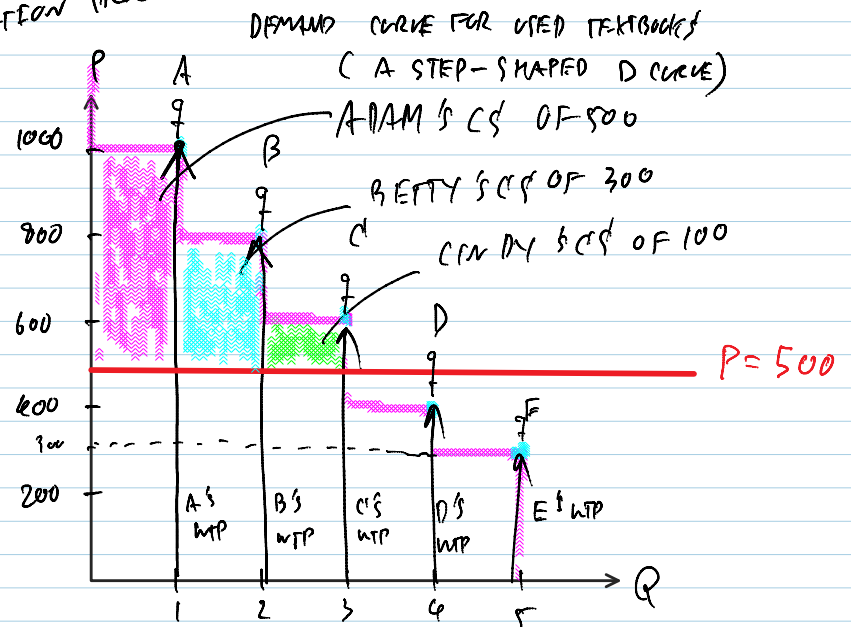 TION
DEMAND CURVE FOR USED TEXTBOOKS
(A STEP-SHAPED D CURVE)
P
A
ADAM'S CS OF 500
1000
B
BETTY'S CS OF 300
800
C
CINDY'S CS OF 100
600
D
P = 500
400
300
200
A's WTP
B's WTP
C's WTP
D's WTP
E's WTP
Q
1 2 3 4 5